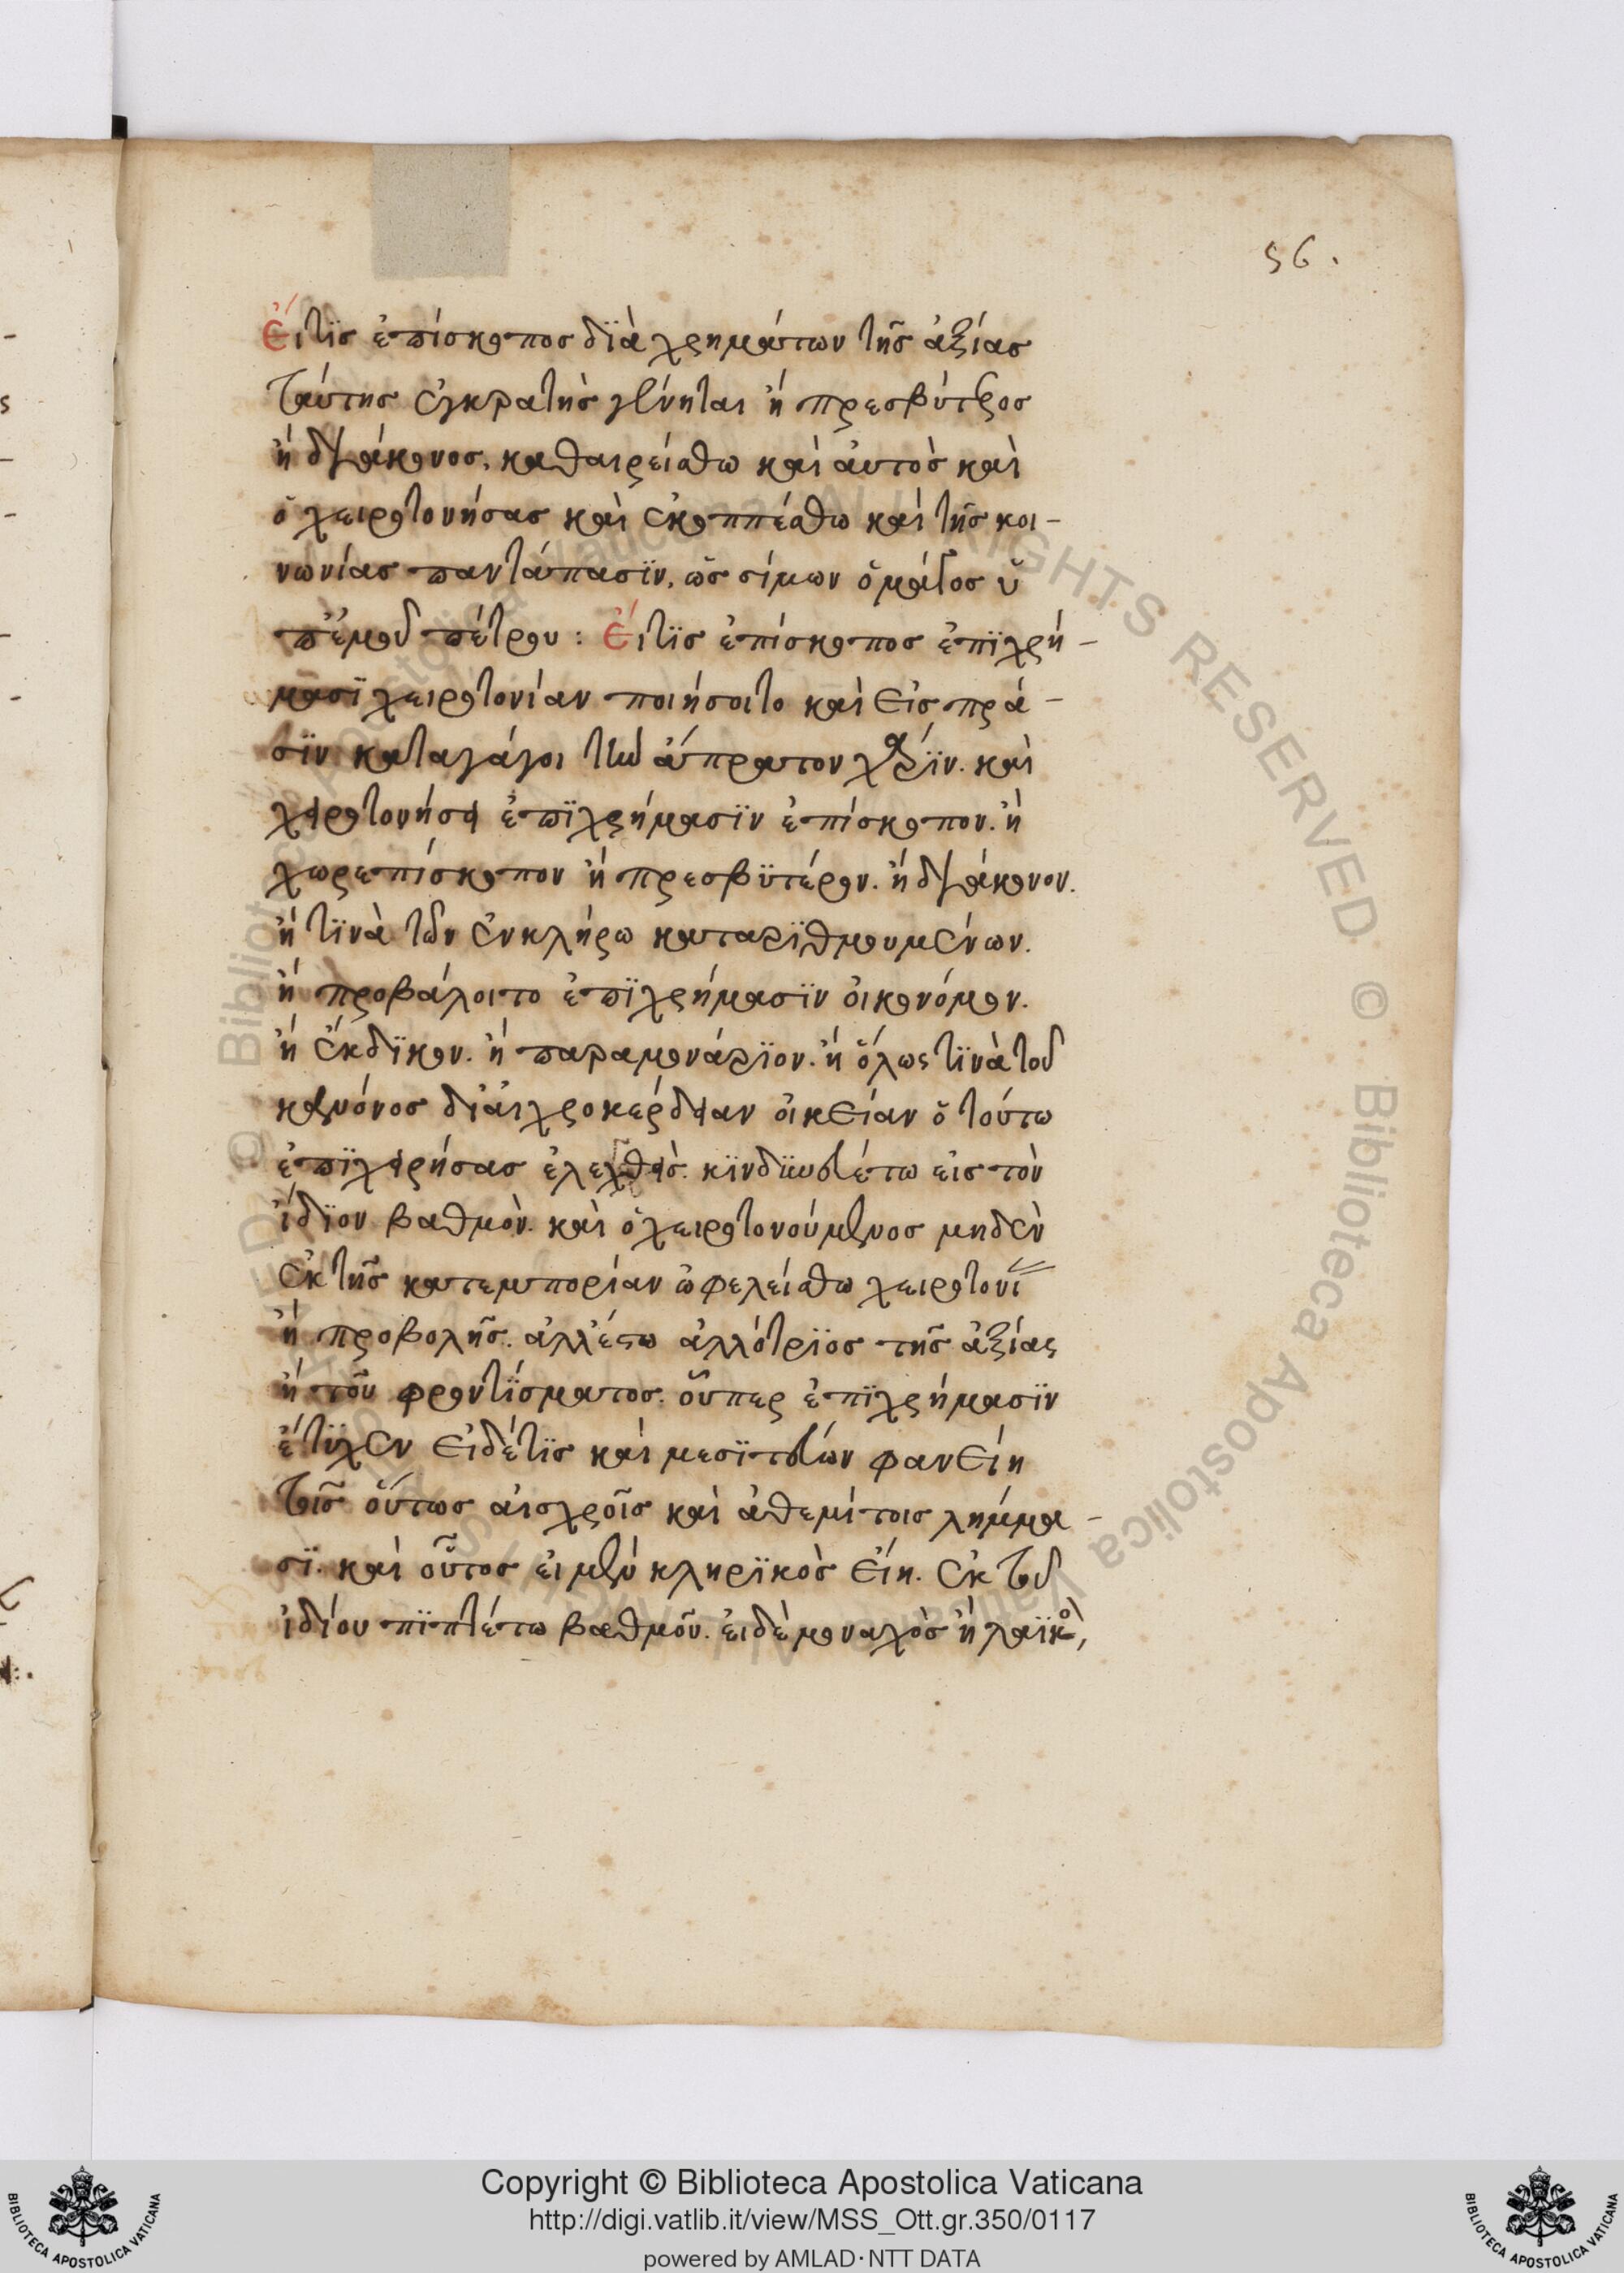 56.
Εἴ τϊς ἐπίσκοπος δϊὰ χρημάτων τῆς ἀξίας
ταύτης ἐγκρατὴς γένηται ἢ πρεσβύτερος
ἢ διάκονος, καθαιρείσθω καὶ ἀυτὸς καὶ
ὁ χειροτονήσας καὶ ἐκοππέσθω καὶ τῆς κοι-
νωνίας παντάπασϊν, ὡς σίμων ὁ μάγος ὑ
π' ἐμοῦ πέτρου : Εἴ τϊς ἐπίσκοπος ἐπϊ χρή-
μασϊ χειροτονίαν ποιήσοιτο καὶ εἰς πρά-
σϊν καταγάγοι τὴν ἄπρατον χάρϊν. καὶ
χειροτονήσει ἐπϊ χρήμασϊν ἐπίσκοπον. ἢ
χωρεπίσκοπον ἢ πρεσβϋτέρον. ἢ διάκονον.
ἢ τϊνὰ τῶν ἐν κλήρω καταρϊθμουμένων.
ἢ προβάλοιτο ἐπϊ χρήμασϊν ὀικονόμον.
ἢ ἔκδϊκον. ἢ παραμονάρϊον. ἢ ὅλως τϊνὰ τοῦ
κανόνος δι' ἀισχροκέρδειαν ὀικείαν ὁ τούτω
ἐπϊχειρήσας ἐλεγχθεὶς. κϊνδϋνευέτω εἰς τὸν
ἴδϊον βαθμὸν. καὶ ὁ χειροτονούμενος μηδὲν
ἐκ τῆς κατεμπορίαν ὠφελείσθω χειροτονί
ἢ προβολῆς. ἀλλ' ἔστω ἀλλότρϊος τῆς ἀξίας
ἢ τοῦ φροντϊσματος. οὗπερ ἐπϊ χρήμασϊν
ἔτϋχεν εἰ δέ τϊς καὶ μεσϊτεύων φανείη
τοῖς οὕτως ἀισχροῖς καὶ ἀθεμίτοις λημμα-
σϊ. καὶ οὗτος ἐι μὲν κληρϊκὸς εἴη. ἐκ τοῦ
ἰδίου πϊπτέτω βαθμοῦ. ἐι δὲ μοναχὸς ἢ λαϊκὸς,
Copyright © Biblioteca Apostolica Vaticana
http://digi.vatlib.it/view/MSS_Ott.gr.350/0117
powered by AMLAD·NTT DATA